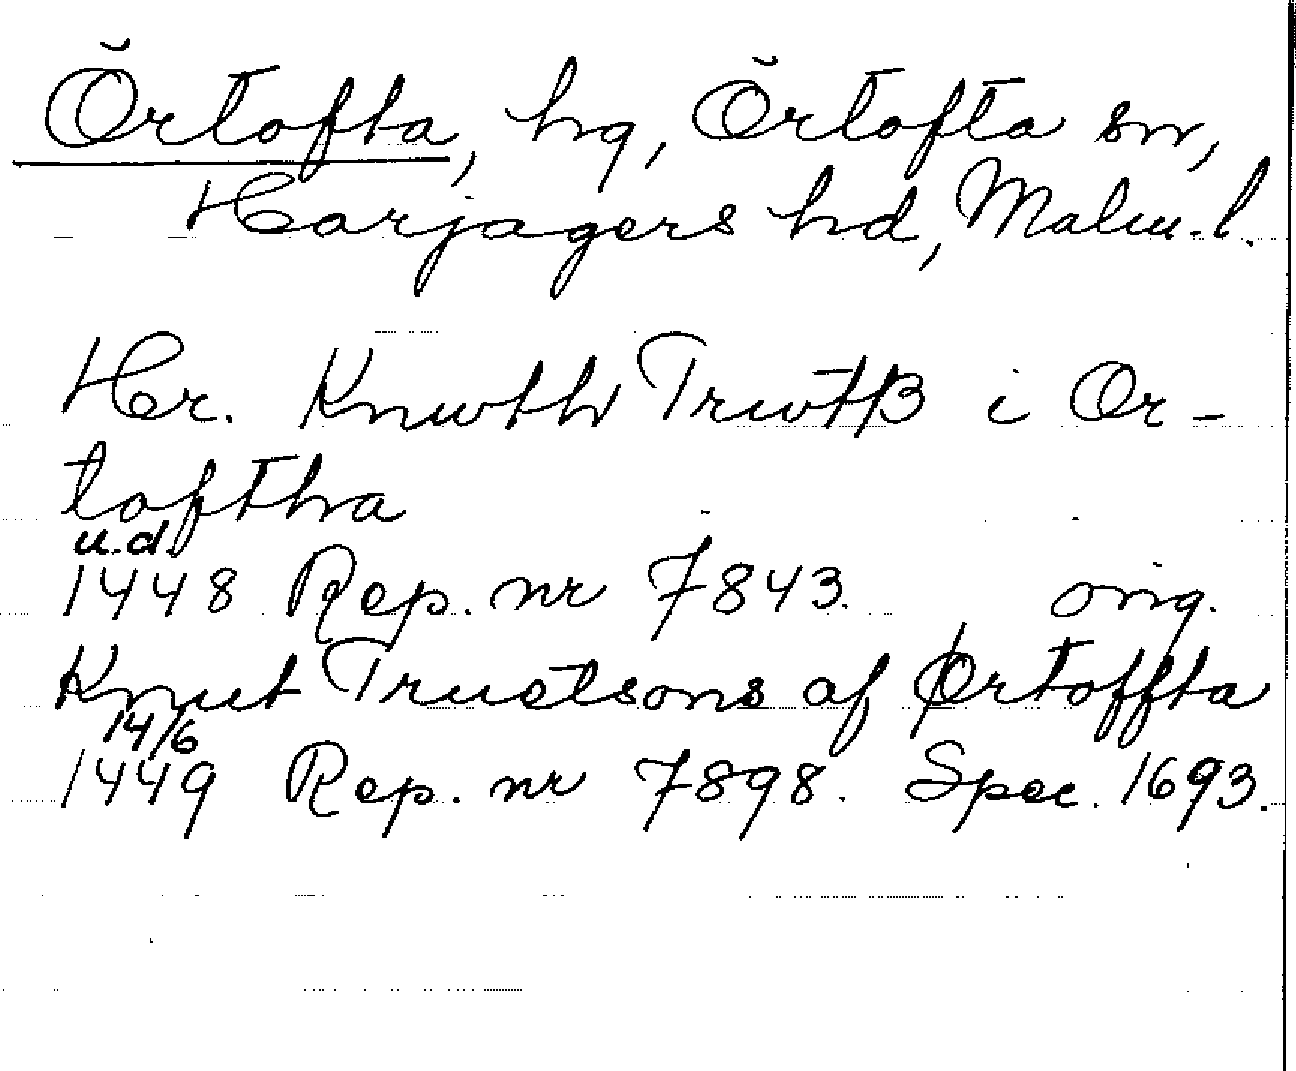 Örtofta, hg, Örtofta sn,
Harjagers hd, Malm. l.
Her. Knwth Trwtß i Or-
toftha
u.d.
1448 Rep. nr 7843. orig.
Knut Truetsons af Ørtoffta
14/6
1449 Rep. nr 7898. Spec. 1693.